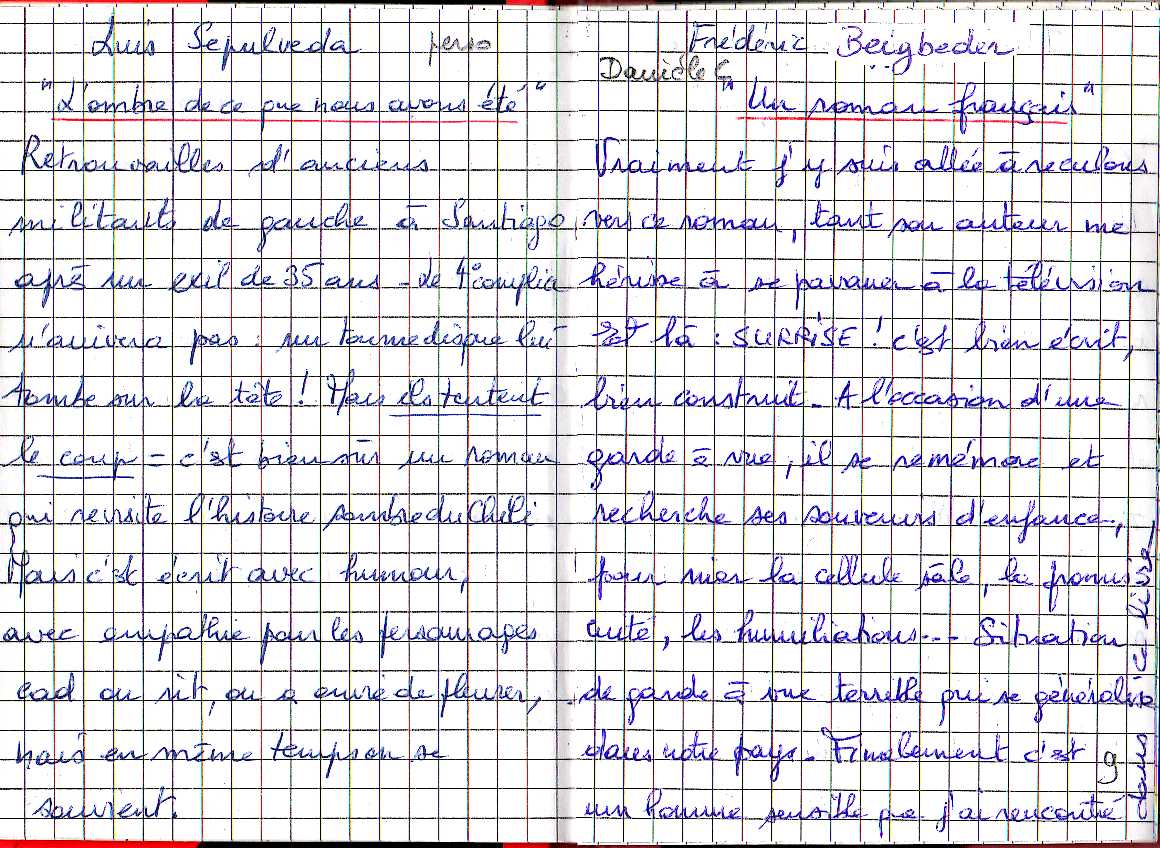 Luis Sepulveda perso
"L'ombre de ce que nous avons été"
Retrouvailles d'anciens
militants de gauche à Santiago
après un exil de 35 ans - le 4e complice
n'arrivera pas : un tournedisque lui
tombe sur la tête ! Mais ils tentent
le coup = c'est bien sûr un roman
qui revisite l'histoire sombre du Chili
Mais c'est écrit avec humour,
avec empathie pour les personnages
cad on rit, on a envie de pleurer,
mais en même temps on se
souvient.
Frédéric Beigbeder
Danièle C
"Un roman français"
Vraiment j'y suis allée à reculons
vers ce roman, tant son auteur me
hérisse à se pavaner à la télévision
Et là : SURPRISE ! c'est bien écrit,
bien construit - A l'occasion d'une
garde à vue, il se remémore et
recherche ses souvenirs d'enfance,
pour nier la cellule sale, la promis
cuité, les humiliations... Situation
de garde à vue terrible qui se généralise
dans notre pays - Finalement c'est
un homme sensible que j'ai rencontré
dans ce livre -
9